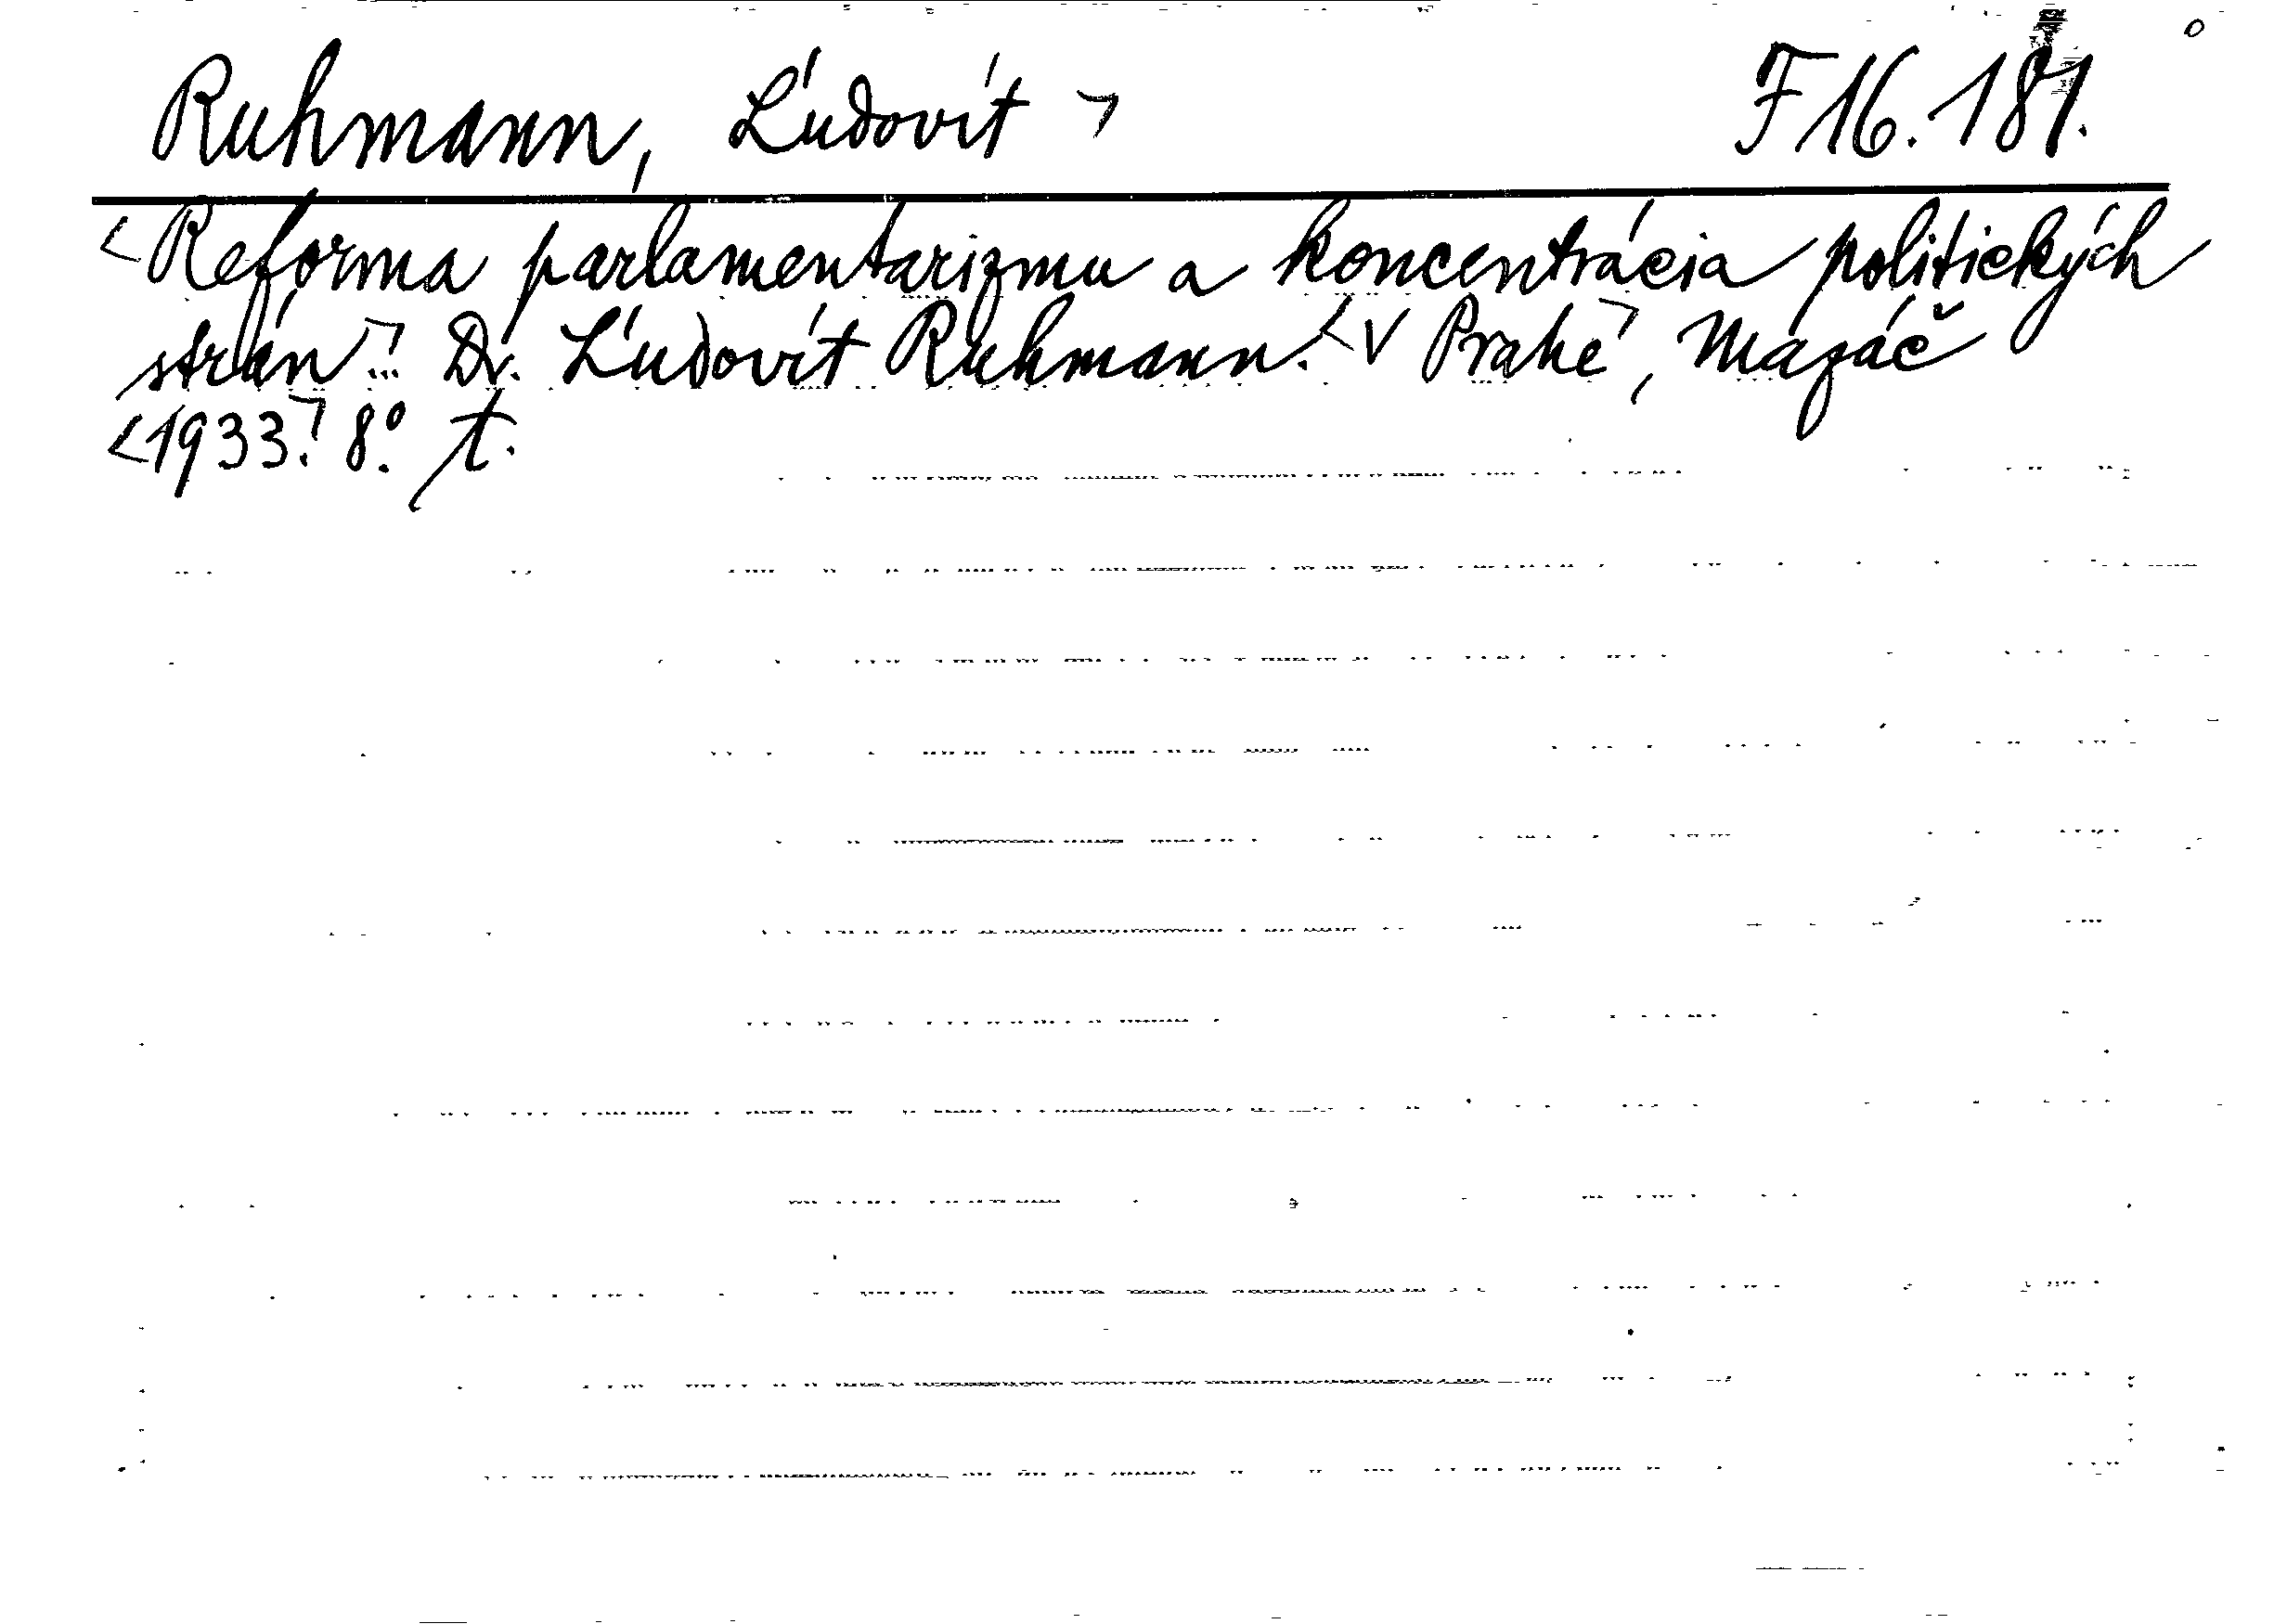 Ruhmann, Ľudovít ㄱ F 16.181.
<Reforma parlamentarizmu a koncentrácia politických
strán⌝... Dr. Ľudovít Ruhmann. <V Prahe⌝, Mazáč
<1933.⌝ 8.° t.